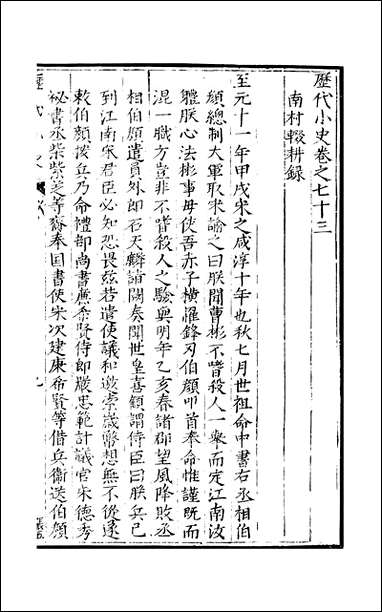 歷代小史卷之七十三
南村輟耕録
至元十一年甲戌宋之咸淳十年也秋七月世祖命中書右丞相伯
顔總制大軍取宋諭之曰朕聞曹彬不嗜殺人一舉而定江南汝
軆朕心法彬事毋使吾赤子橫罹鋒刃伯顔叩首奉命惟謹既而
混一職方豈非不嗜殺人之驗與明年乙亥春諸郡望風降敗丞
相伯顔遣員外郎石天麟詣闕奏聞世皇喜顧謂侍臣曰朕兵已
到江南宋君臣必知恐畏兹若遣使議和邀索歲幣想無不從遂
敕伯顔按兵乃命禮部尚書廉希賢侍郎嚴忠範計議官宋德秀
祕書丞柴紫芝等齎奉国書使宋次建康希賢等借兵衛送伯顔
歷代小史